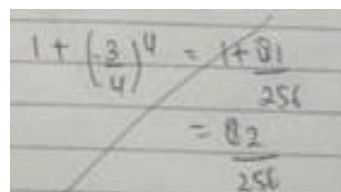 1 + (3/4)^4 = 1 + 81/256
= 82/256